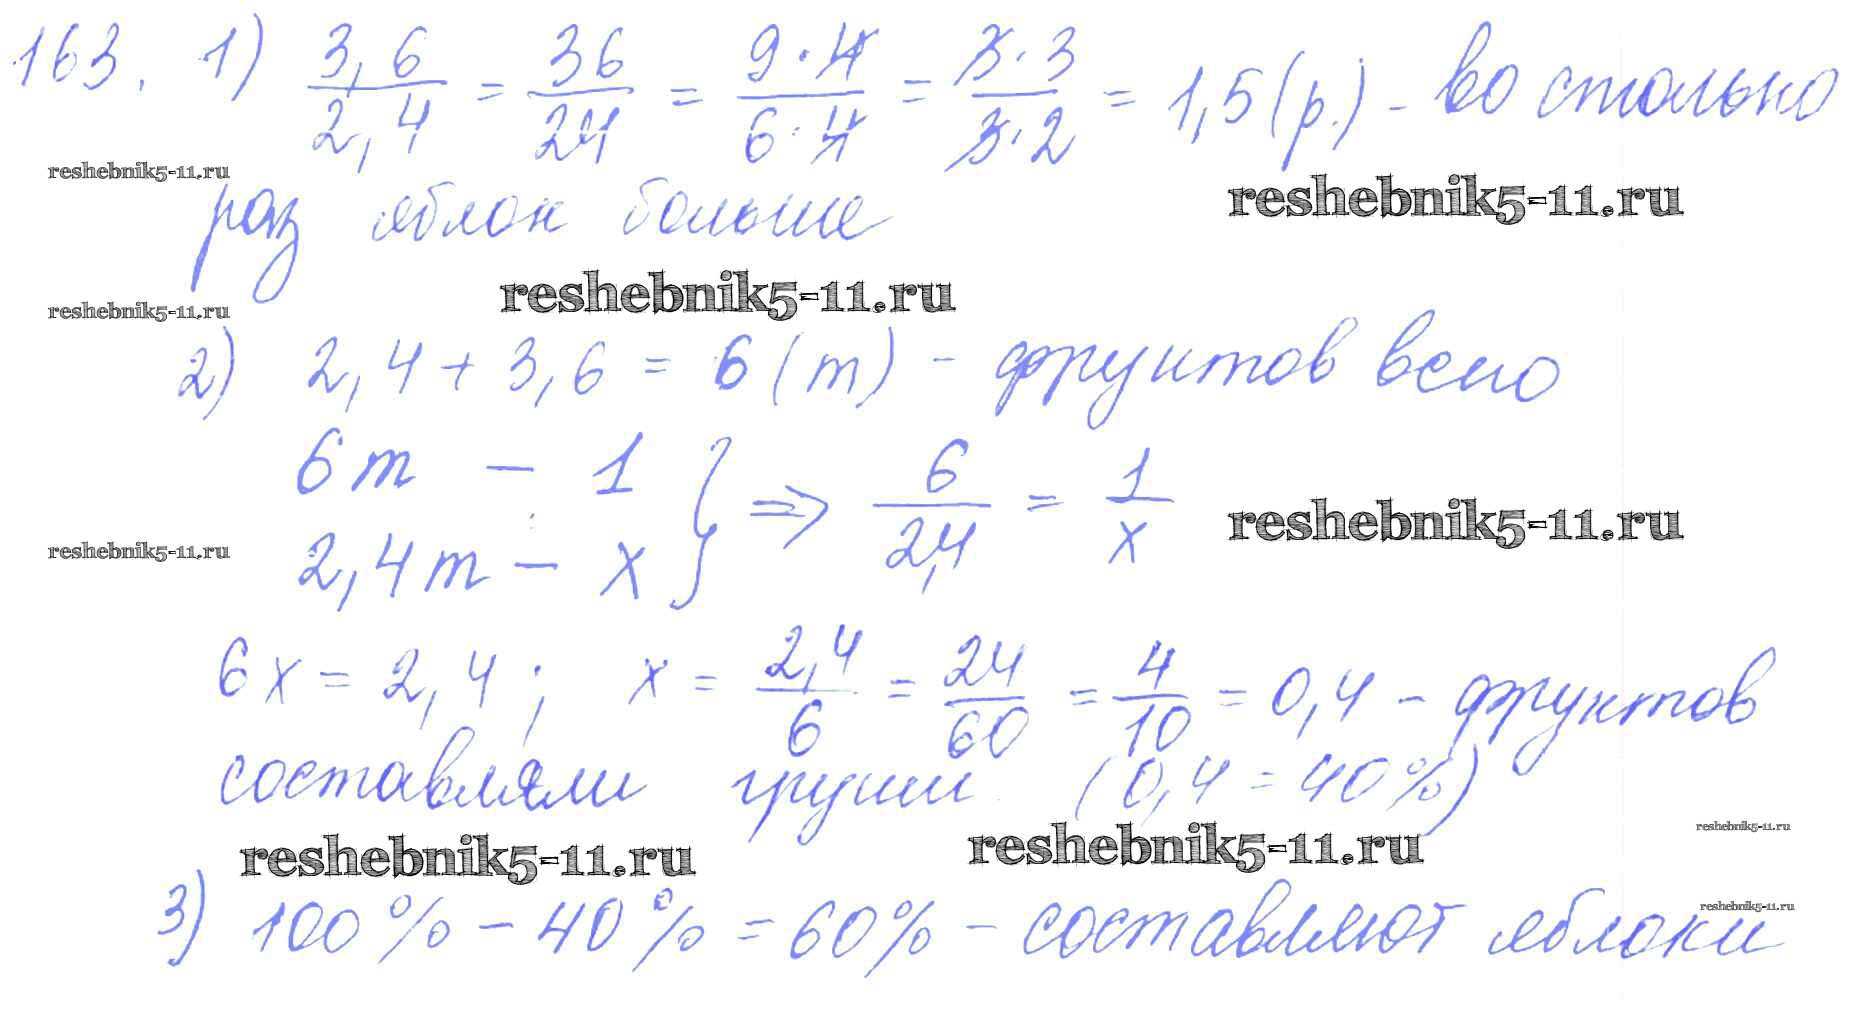 163. 1) 3,6/2,4 = 36/24 = 9·4/6·4 = 3·3/3·2 = 1,5 (р.) - во столько
reshebnik5-11.ru
раз яблок больше
reshebnik5-11.ru
reshebnik5-11.ru
reshebnik5-11.ru
2) 2,4 + 3,6 = 6 (т) - фруктов всего
6т - 1
2,4т - х } ⇒ 6/2,4 = 1/х
reshebnik5-11.ru
reshebnik5-11.ru
6х = 2,4; х = 2,4/6 = 24/60 = 4/10 = 0,4 - фруктов
составляли груши (0,4 = 40%)
reshebnik5-11.ru
reshebnik5-11.ru
reshebnik5-11.ru
3) 100% - 40% = 60% - составляют яблоки
reshebnik5-11.ru